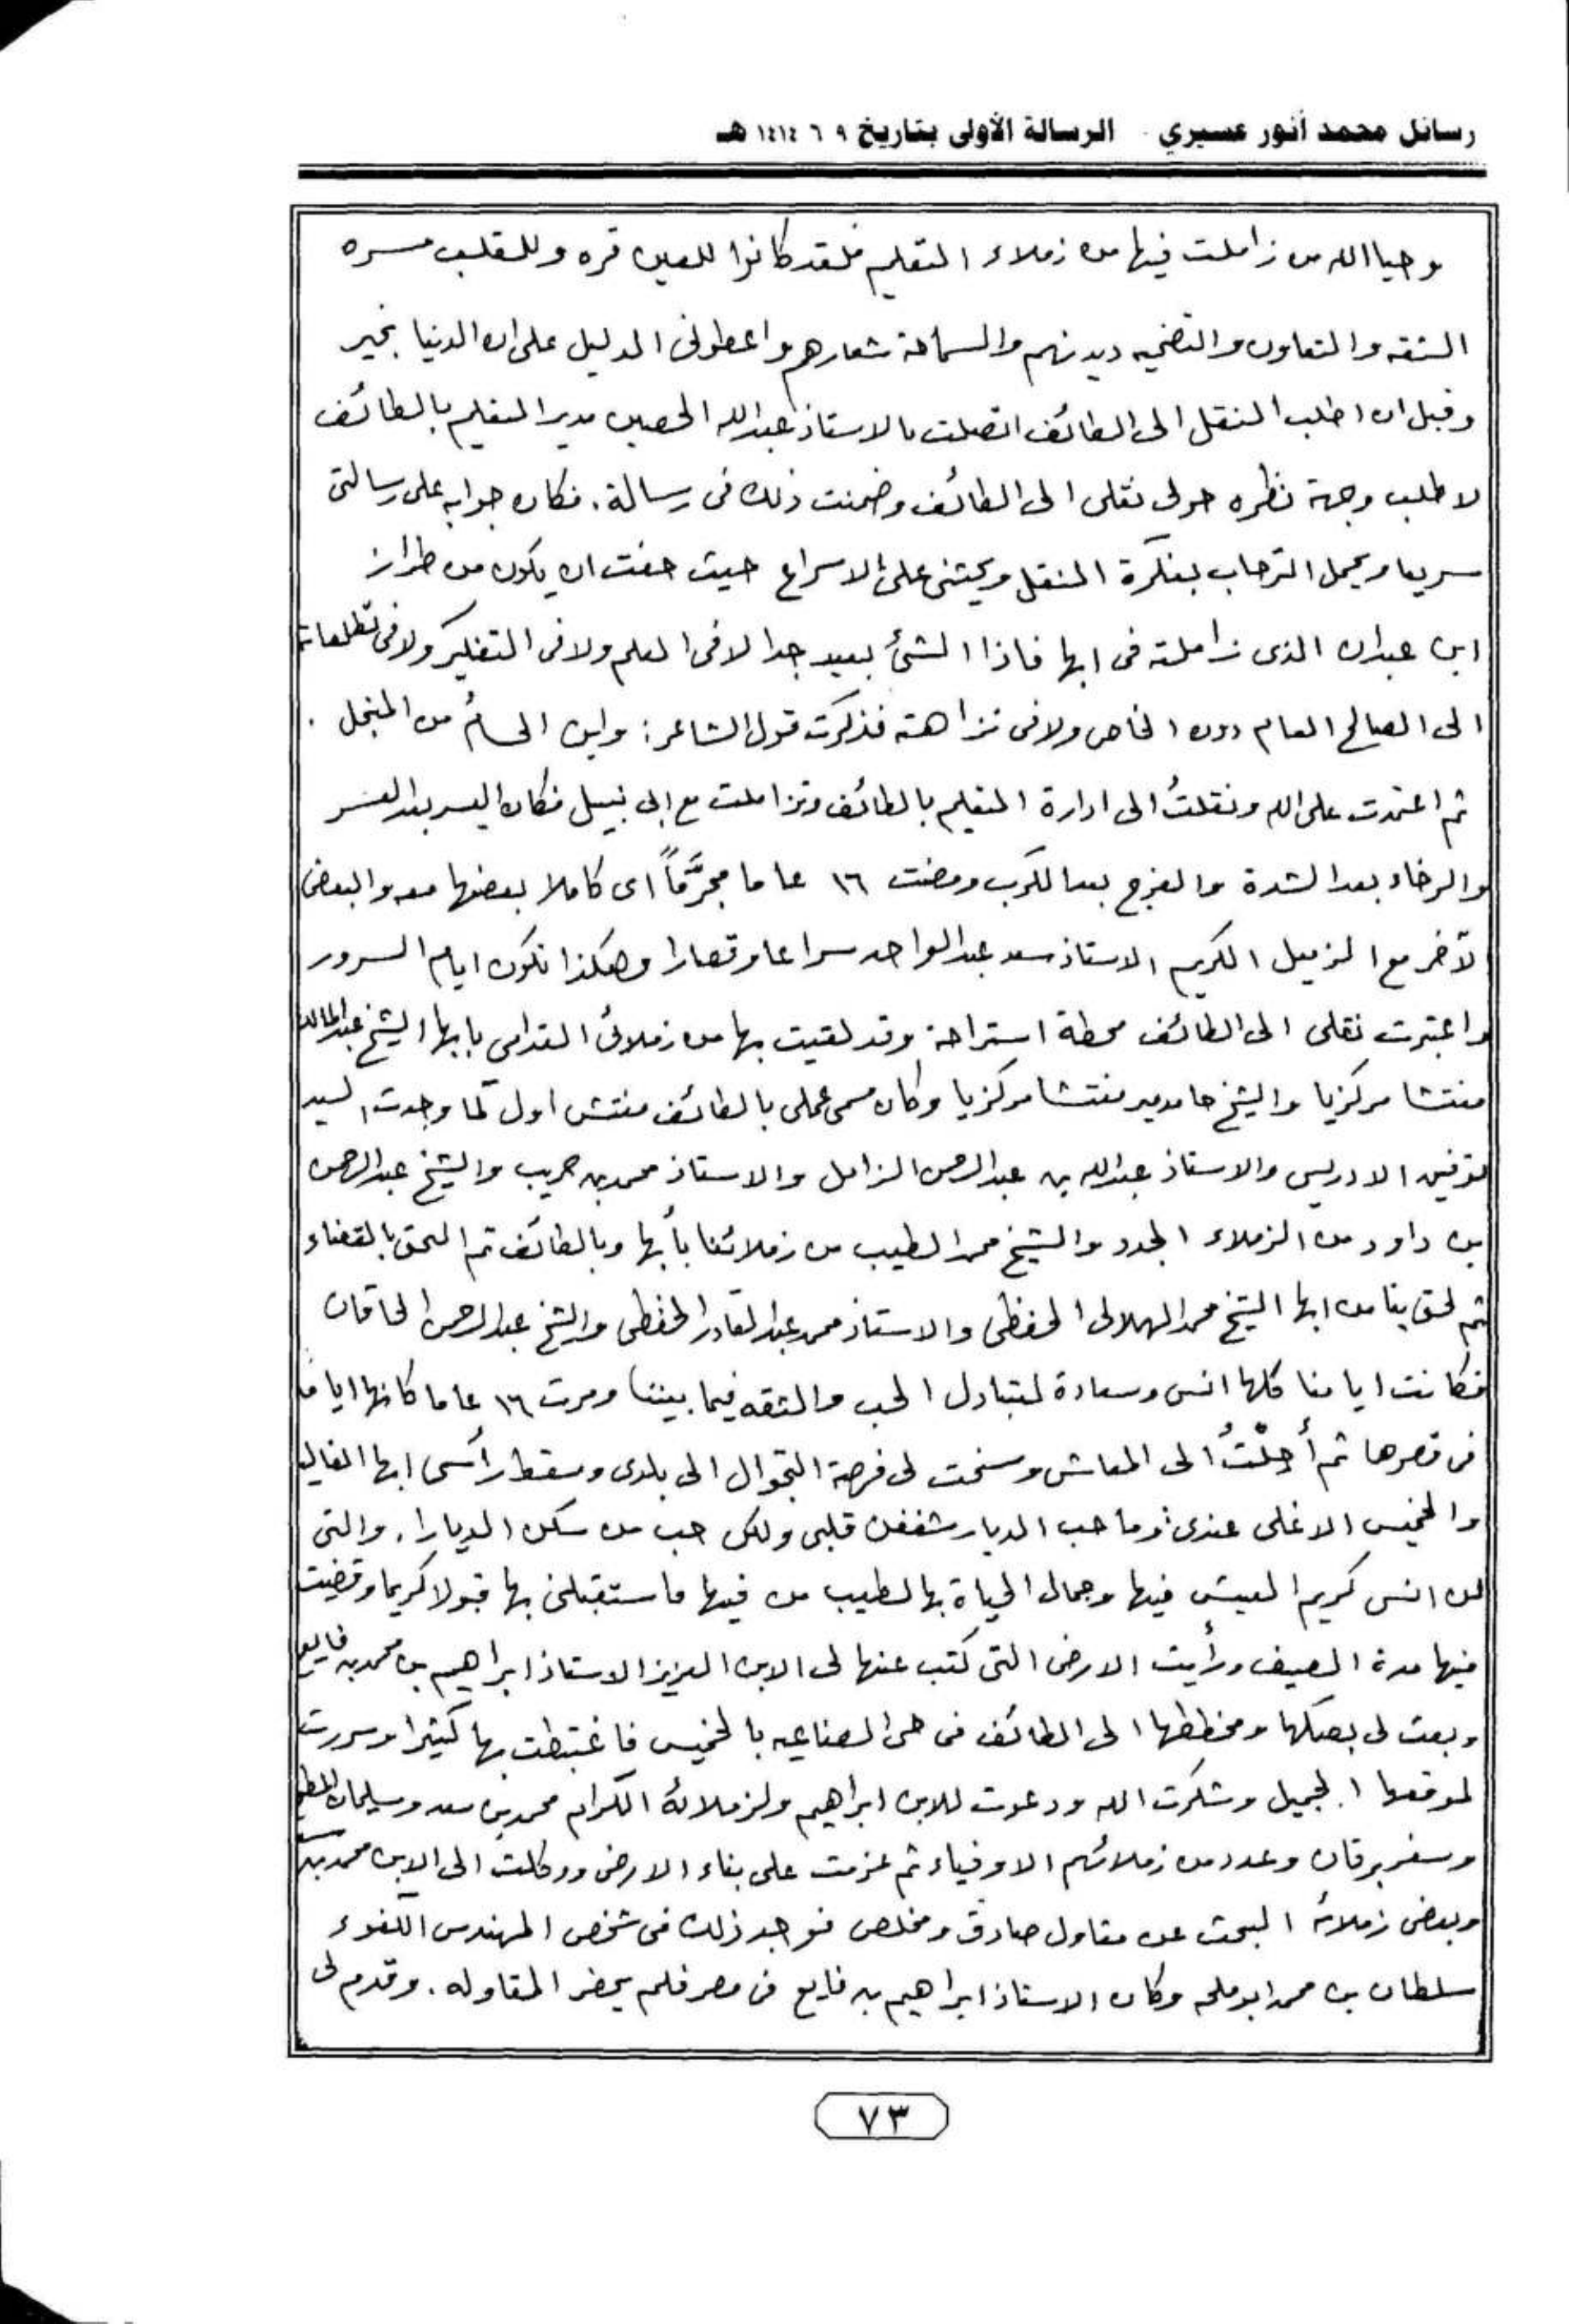 رسائل محمد أنور عسيري - الرسالة الأولى بتاريخ ٩ ٦ ١٤١٤ هـ
وحيا الله من زاملت فيها من زملاء التعليم فلقد كانوا للعين قره وللقلب مسره
الثقه والتعاون والتضحيه ديدنهم والسماحة شعارهم واعطونى الدليل على ان الدنيا بخير
وقبل ان اطلب النقل الى الطائف اتصلت بالاستاذ عبدالله الحصين مدير التعليم بالطائف
لاطلب وجهة نظره حول نقلى الى الطائف وضمنت ذلك فى رسالة. فكان جوابه على رسالتى
سريعا ويحمل الترحاب بفكرة النقل ويحثنى على الاسراع حيث خفت ان يكون من طراز
ابن عبدان الذى زاملته فى ابها فاذا الشئ بعيد جدا لا فى العلم ولا فى التفكير ولا فى تطلعاته
الى الصالح العام دون الخاص ولا فى نزاهته فذكرت قول الشاعر: واين الحسامُ من المنجل .
ثم اعتمدت على الله ونقلتُ الى ادارة التعليم بالطائف وتزاملت مع ابى نبيل فكان اليسر بعد العسر
والرخاء بعد الشدة والفرج بعد الكرب ومضت ١٦ عاما مجرَّماً اى كاملا بعضها معه والبعض
لآخر مع الزميل الكريم الاستاذ سعد عبدالواحد سراعا وقصارا وهكذا تكون ايام السرور
واعتبرت نقلى الى الطائف محطة استراحة وقد لقيت بها من زملائى القدامى بابها الشيخ عبدالمالك
مفتشا مركزيا والشيخ حامد مفتشا مركزيا وكان مسمى عملى بالطائف مفتش اول كما وجدت السيد
توفيق الادريسى والاستاذ عبدالله بن عبدالرحمن الزامل والاستاذ محمد بن حريب والشيخ عبدالرحمن
بن داود من الزملاء الجدد والشيخ محمد الطيب من زملائنا بأبها وبالطائف ثم التحق بالقضاء
ثم لحق بنا من ابها الشيخ محمد الهلالى الحفظى والاستاذ محمد عبدالقادر الحفظى والشيخ عبدالرحمن الحاقان
فكانت ايامنا كلها انس وسعادة لتبادل الحب والثقه فيما بيننا ومرت ١٦ عاما كانها اياما
فى قصرها ثم أُحِلْتُ الى المعاش وسنحت لى فرصة التجوال الى بلدى ومسقط رأسى ابها الغاليه
والخميس الاغلى عندى: وما حب الديار شغفن قلبى ولكن حب من سكن الديارا. والتى
لمن انس كريم العيش فيها وجمال الحياة بها لطيب من فيها فاستقبلنى بها قبولا كريما وقضيت
فيها مدة الصيف ورأيت الارض التى كتب عنها لى الابن العزيز الاستاذ ابراهيم بن محمد بن فايع
وبعث لى بصكها ومخططها الى الطائف فى حى الصناعيه بالخميس فاغتبطت بها كثيرا وسررت
لموقعها الجميل وشكرت الله ودعوت للابن ابراهيم ولزملائه الكرام محمد بن سعد وسليمان
وسفر برقان وعدد من زملائهم الاوفياء ثم عزمت على بناء الارض ووكلت الى الابن محمد بن
وبعض زملائه البحث عن مقاول صادق ومخلص فوجد ذلك فى شخص المهندس الكفوء
سلطان بن محمد ابو ملحه وكان الاستاذ ابراهيم بن فايع فى مصر فلم يحضر المقاوله. وقدم لى
٧٣